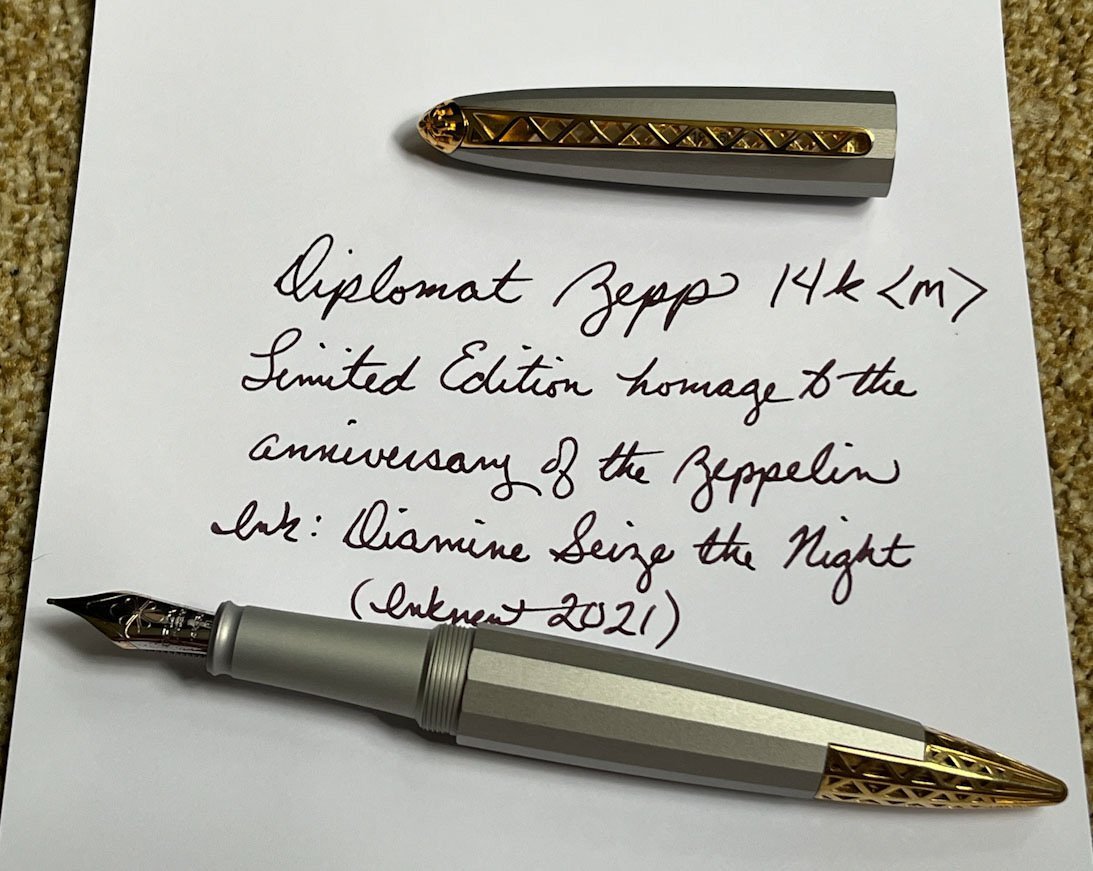 Diplomat Zepp 14k <m>
Limited Edition homage to the
anniversary of the Zeppelin
Ink: Diamine Seize the Night
(Inkvent 2021)